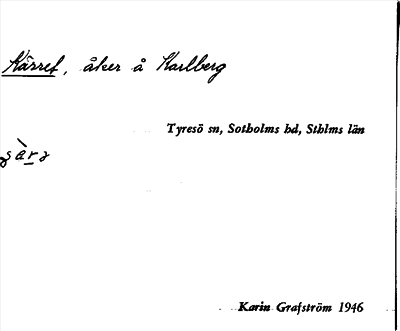 Kärret, åker å Karlberg
Tyresö sn, Sotholms hd, Sthlms län
Karin Grafström 1946